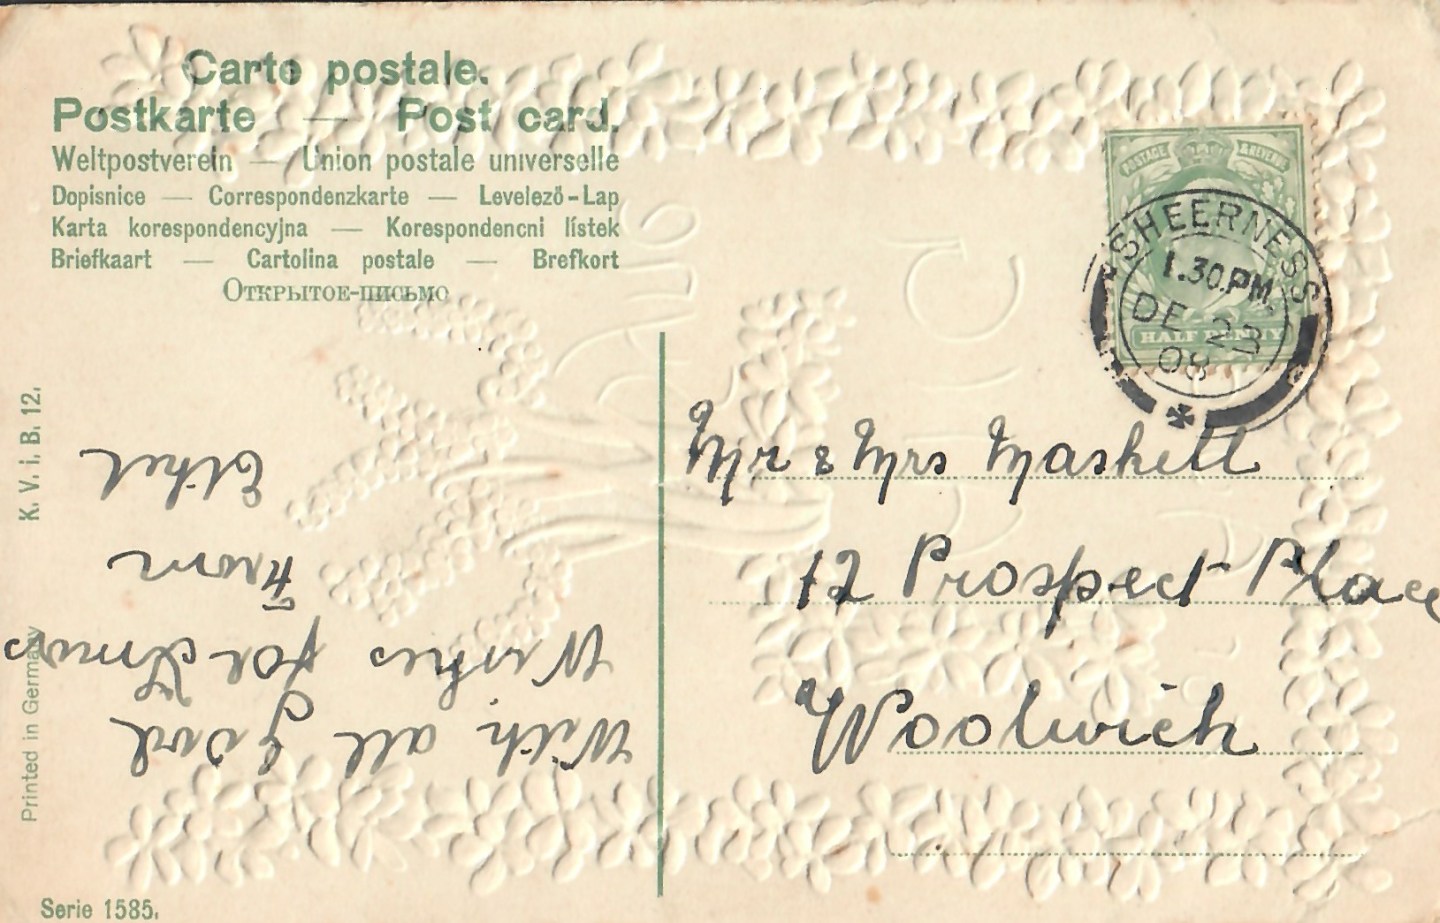 Carte postale.
Postkarte — Post card.
Weltpostverein — Union postale universelle
Dopisnice — Correspondenzkarte — Levelező-Lap
Karta korespondencyjna — Korespondencni lístek
Briefkaart — Cartolina postale — Brefkort
Открытое-письмо
POSTAGE & REVENUE
HALF PENNY
SHEERNESS
1.30.PM
DE 23
08
Mr & Mrs Maskell
12 Prospect Place
Woolwich
With all good
Wishes for Xmas
From
Ethel
K. V. i. B. 12.
Printed in Germany
Serie 1585.